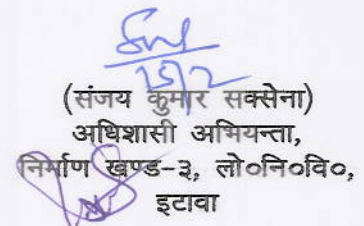 15/2
(संजय कुमार सक्सेना)
अधिशासी अभियन्ता,
निर्माण खण्ड-३, लो०नि०वि०,
इटावा